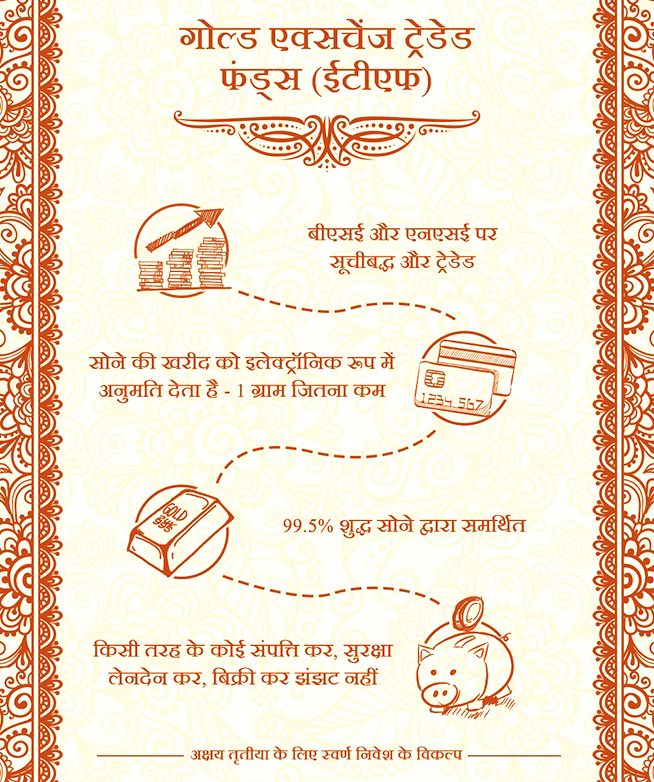 गोल्ड एक्सचेंज ट्रेडेड
फंड्स (ईटीएफ)
बीएसई और एनएसई पर
सूचीबद्ध और ट्रेडेड
सोने की खरीद को इलेक्ट्रॉनिक रूप में
अनुमति देता है - 1 ग्राम जितना कम
1234 567
GOLD
99.5% शुद्ध सोने द्वारा समर्थित
किसी तरह के कोई संपत्ति कर, सुरक्षा
लेनदेन कर, बिक्री कर झंझट नहीं
अक्षय तृतीया के लिए स्वर्ण निवेश के विकल्प